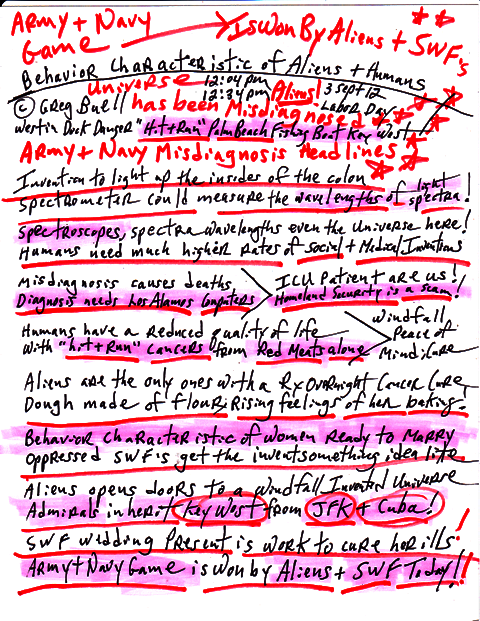 Army + Navy
Game → Is Won By Aliens + SWF's
Behavior Characteristic of Aliens + Humans
Universe 12:04 pm Aliens! 3 Sept 12
© Greg Buell has been Misdiagnosed 12:34 pm Labor Day
Westin Dock Danged "Hit + Run" Palm Beach Fishing Boat Key West
Army + Navy Misdiagnosis Headlines
Invention to light up the insides of the colon
Spectrometer could measure the wavelengths of light spectra!
Spectroscopes, spectra wavelengths even the Universe here!
Humans need much higher rates of social + Medical Inventions
Misdiagnosis causes deaths,
Diagnosis needs Los Alamos Computers
ICU Patient are us!
Homeland Security is a scam!
Humans have a reduced quality of life
With "hit + run" cancers from Red Meats alone
Windfall
Peace of
Mind; Cure
Aliens are the only ones with a Rx Overnight Cancer Cure,
Dough made of flour; Rising feelings of her baking!
Behavior Characteristic of Women Ready to Marry
Oppressed SWF's get the inventsomething idea life
Aliens opens doors to a windfall Invented Universe
Admirals inherit Key West from JFK + Cuba!
SWF Wedding Present is work to cure her ills!
Army + Navy Game is won by Aliens + SWF Today!!